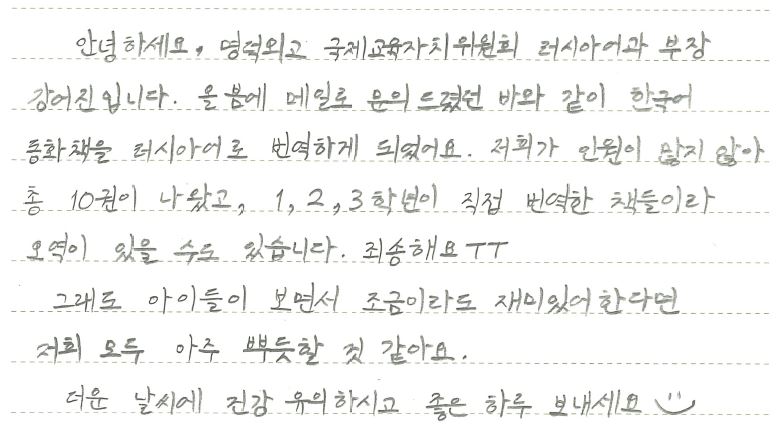 안녕하세요, 명덕외고 국제교육자치위원회 러시아어과 부장
강어진입니다. 올 봄에 메일로 문의드렸던 바와 같이 한국어
동화책을 러시아어로 번역하게 되었어요. 저희가 인원이 많지 않아
총 10권이 나왔고, 1, 2, 3학년이 직접 번역한 책들이라
오역이 있을 수도 있습니다. 죄송해요ㅜㅜ
그래도 아이들이 보면서 조금이라도 재미있어한다면
저희 모두 아주 뿌듯할 것 같아요.
더운 날씨에 건강 유의하시고 좋은 하루 보내세요